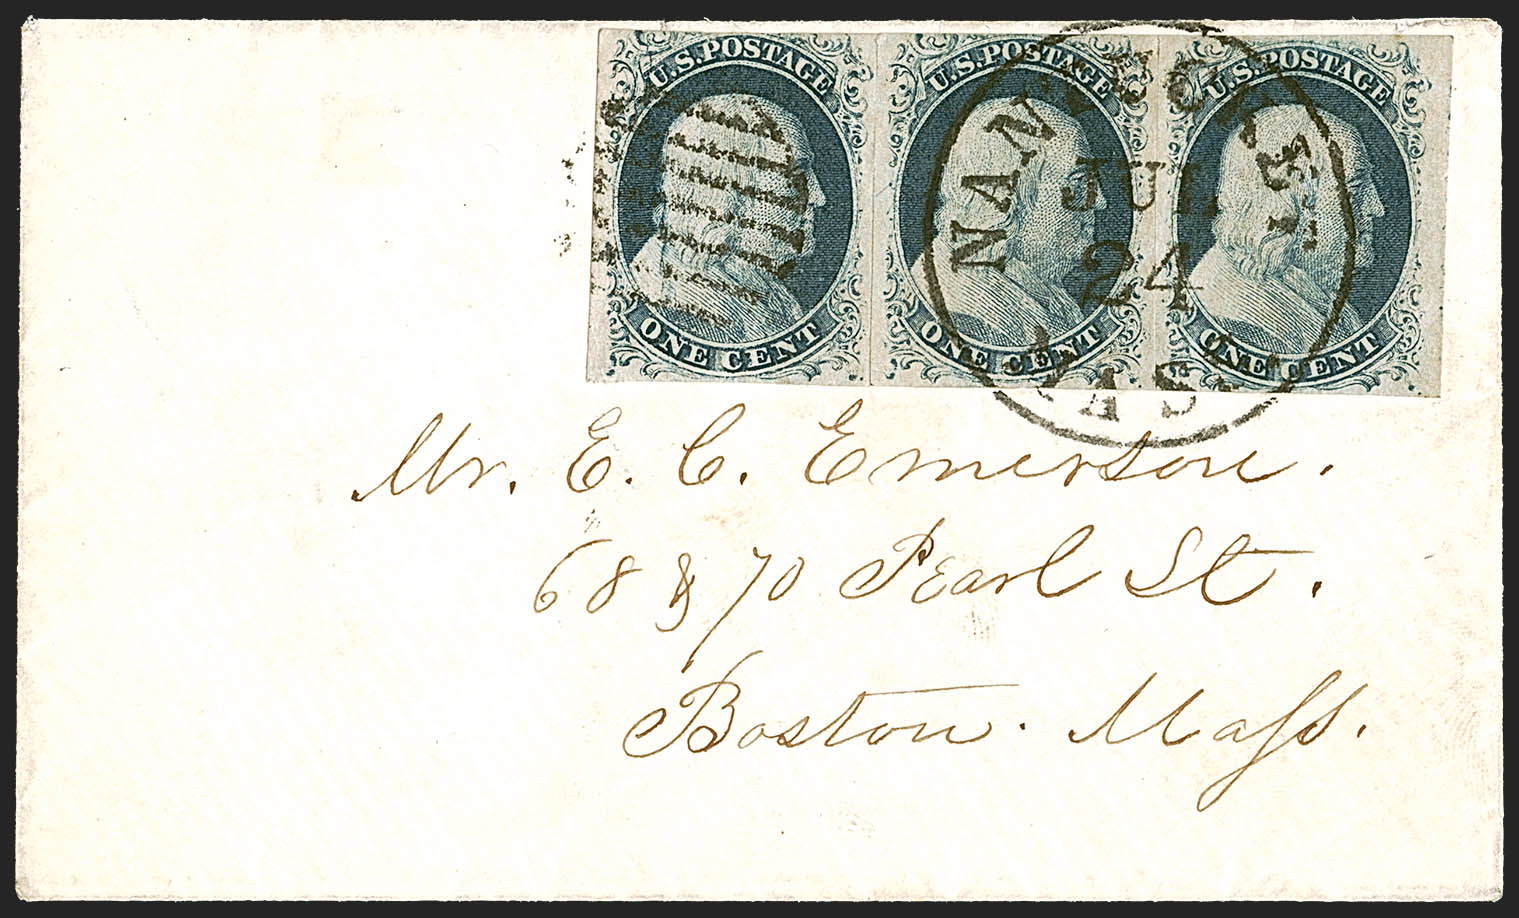 U.S. POSTAGE U.S. POSTAGE U.S. POSTAGE
NANTUCKET
JUL
24
MAS
ONE CENT ONE CENT ONE CENT
Mr. E. C. Emerson.
68 & 70 Pearl St.
Boston. Mass.